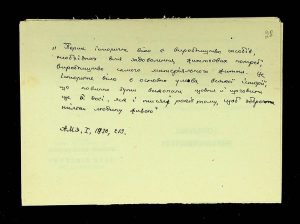 28
„ Перше історичне діло є виробництво засобів,
необхідних для задоволення життєвих потреб,
виробництво самого матеріального життя. Це
історичне діло є основна умова всякої історії,
що повинна бути виконана щодня і щогодини
ще й досі, як і тисячі років тому, щоб зберегти
людину живою"
1930,